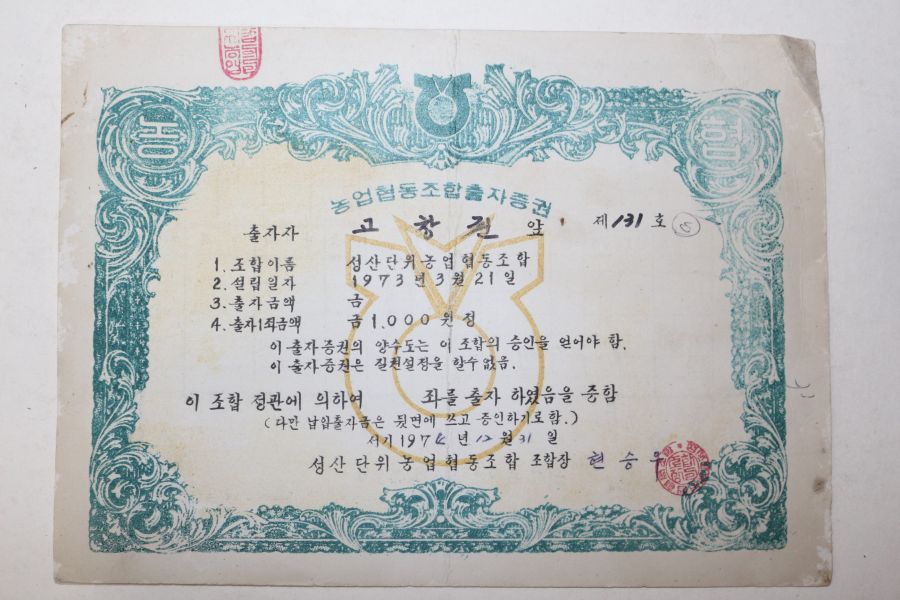 농 협
농업협동조합출자증권
출자자 고창권 앞 제 131 호
1. 조합이름 성산단위농업협동조합
2. 설립일자 1973년3월21일
3. 출자금액 금
4. 출자1좌금액 금1.000원정
이 출자증권의 양수도는 이 조합의 승인을 얻어야 함.
이 출자증권은 질권설정을 할수없음.
이 조합 정관에 의하여 좌를 출자 하였음을 증함
(다만 납입출자금은 뒷면에 쓰고 증인하기로함.)
서기 1974년 12월 31일
성산단위 농업협동조합 조합장 현승우